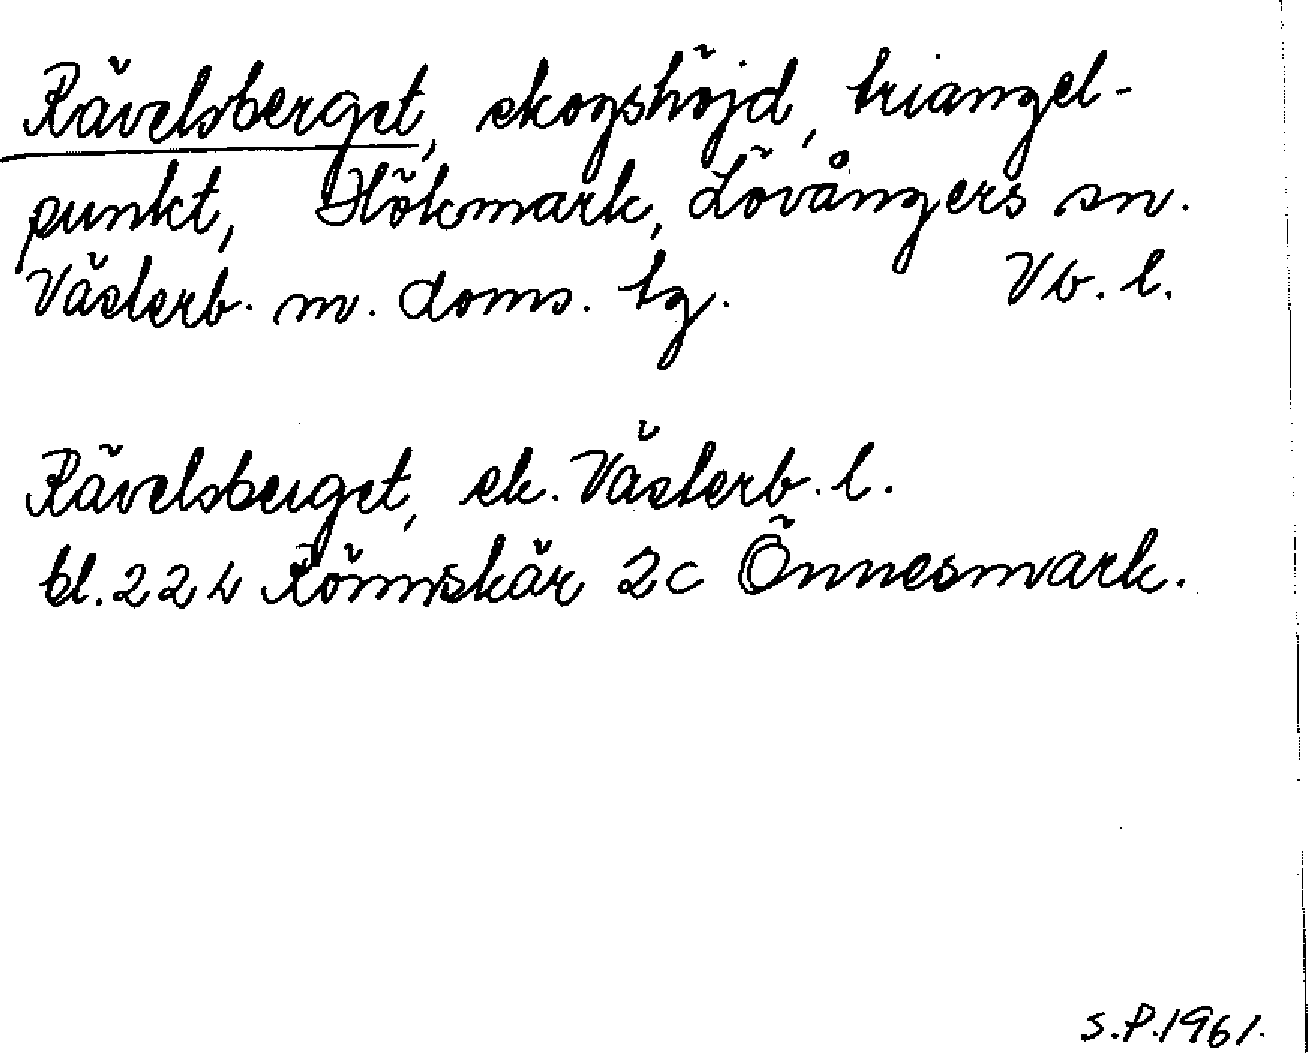 Rävelsberget, skogshöjd, triangel-
punkt, Hökmark, Lövångers sn.
Västerb. m. doms. tg. Vb. l.
Rävelsberget, ek. Västerb. l.
bl. 224 Rönnskär 2c Önnesmark.
S.P. 1961.